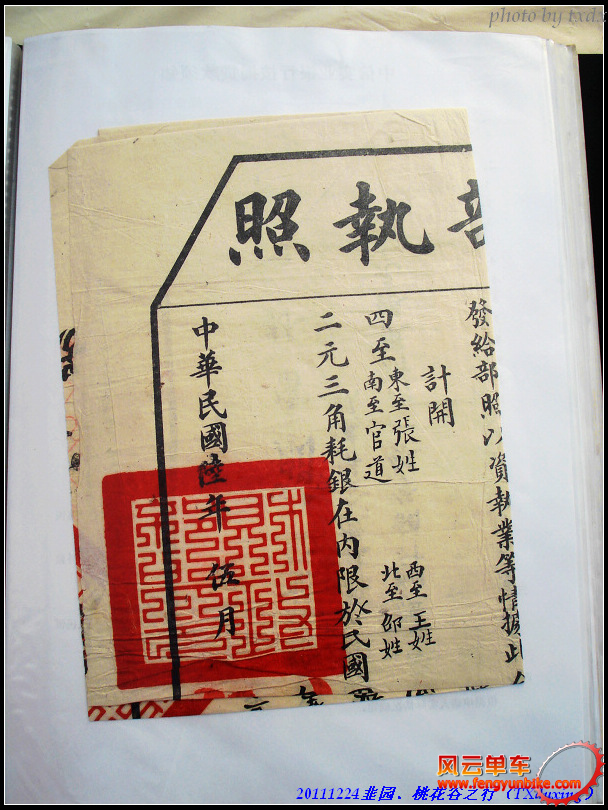 photo by txdx
部執照
發給部照以資執業等情據此
計開
四至東至張姓 西至王姓
南至官道 北至邵姓
二元三角耗銀在內限於民國
中華民國陸年伍月
风云单车
www.fengyunbike.com
20111224韭园、桃花谷之行 (TXduxing)